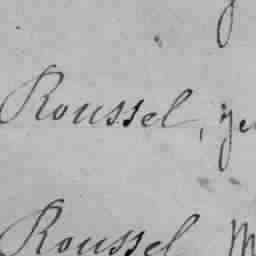 Roussel,
Roussel